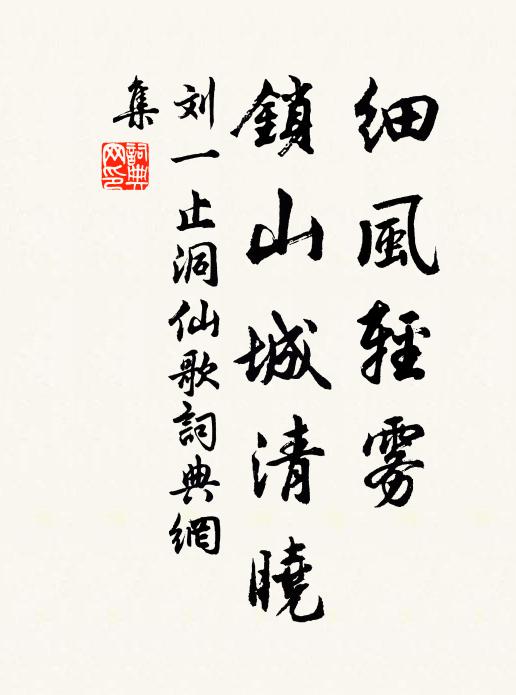 細風輕雾
鎖山城清曉
刘一止洞仙歌詞典網
集
詞典
网印